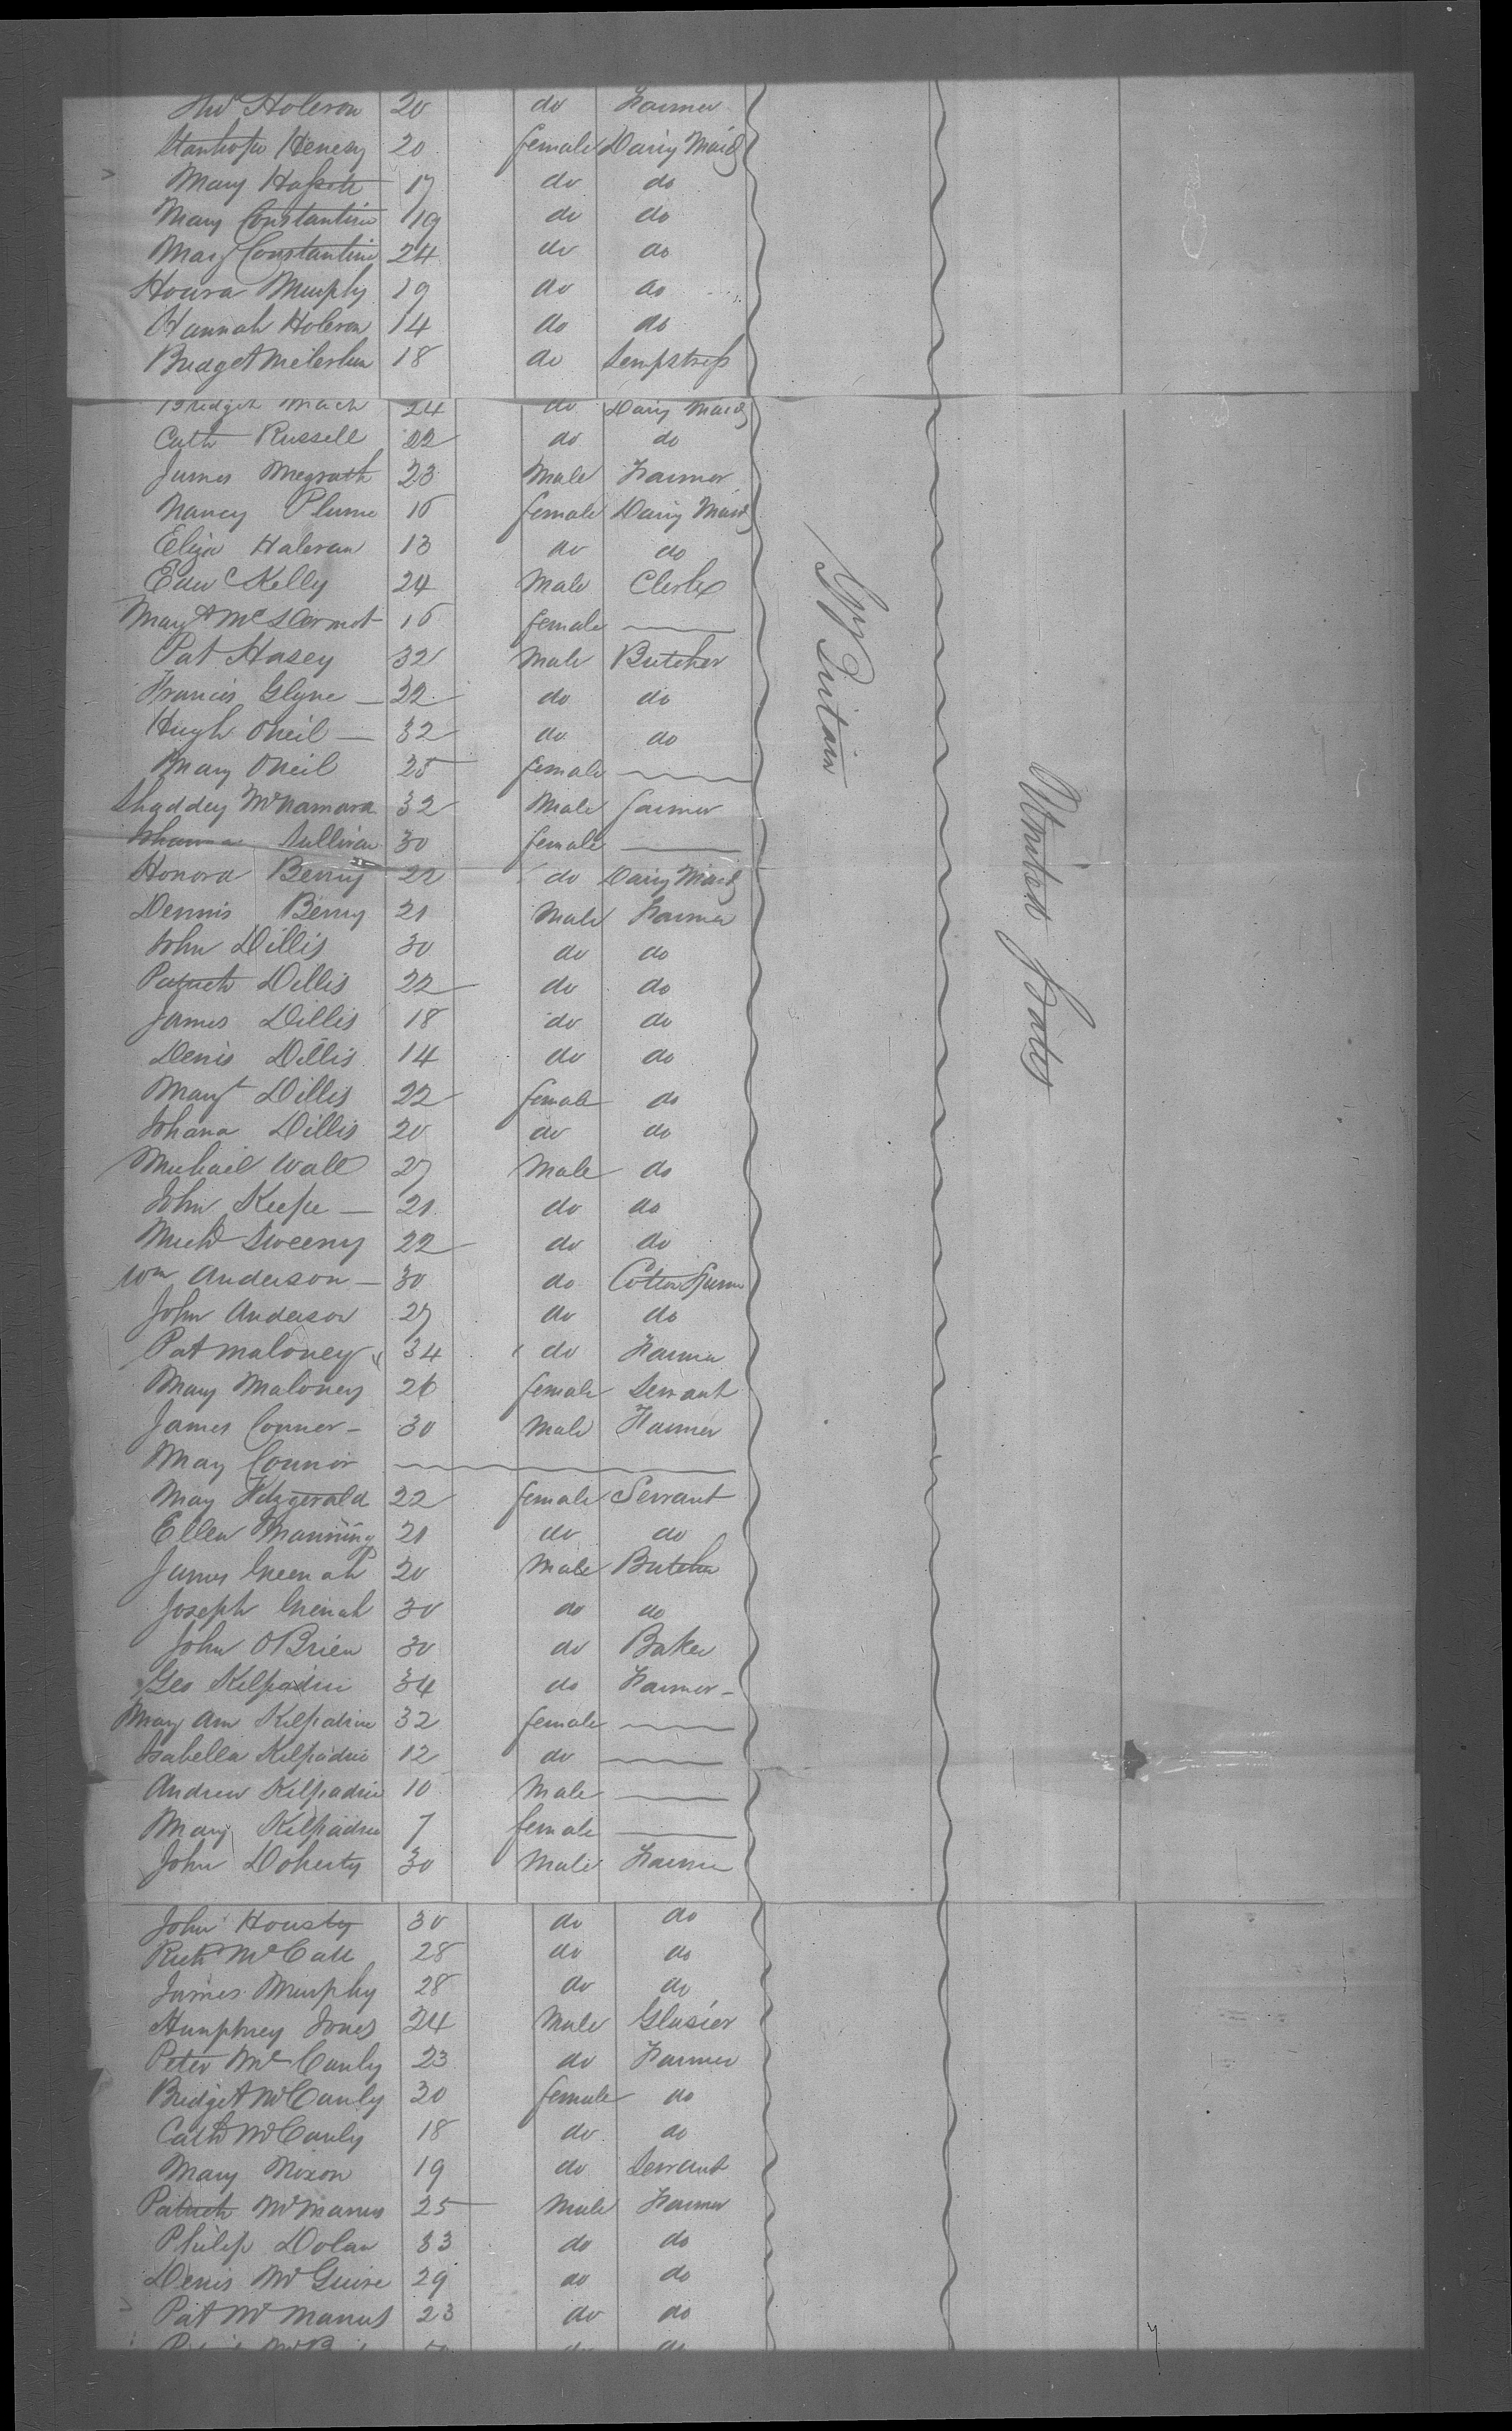 Holeron 20 do Farmer
Stanhope Henesy 20 female Dairy Maid
Mary 17 do do
Mary Constantine 19 do do
Mary Constantine 24 do do
Murphy 19 do do
Hannah Holeron 14 do do
Bridget 18 do Sempstress
Bridget Mack 24 do Dairy Maid
Cath Russell 22 do do
James Megrath 23 Male Farmer
Nancy Plume 16 female Dairy Maid
Eliza Haleran 13 do do
Edwd Kelly 24 Male Clerk
Margt McDermot 16 female
Pat Hasey 32 Male Butcher
Francis Glyne — 22 do do
Hugh Oneil — 32 do do
Mary Oneil 25 female
Shaddey McNamara 32 Male farmer
Johanna Sullivan 30 female
Honora Berry 22 do Dairy Maid
Dennis Berry 21 Male Farmer
John Dillis 30 do do
Patrick Dillis 22 do do
James Dillis 18 do do
Denis Dillis 14 do do
Margt Dillis 22 female do
Johana Dillis 20 do do
Michael Wall 27 Male do
John Keefe — 21 do do
Michl Sweeny 22 do do
Wm Anderson — 30 do Cotton
John Anderson 27 do do
Pat Maloney 34 do Farmer
Mary Maloney 26 female Servant
James Conner - 30 Male Farmer
Mary Connor
Mary Fitzgerald 22 female Servant
Ellen Manning 21 do do
James Greenah 20 Male Butcher
Joseph Grenah 30 do do
John OBrien 30 do Baker
Geo Kilpadrie 34 do Farmer -
Mary Ann Kilpadrie 32 female
Isabella Kilpadrie 12 do
Andrew Kilpadrie 10 Male
Mary Kilpadrie 7 female
John Doherty 30 Male Farmer
John Housty 30 do do
Richd McCall 28 do do
James Murphy 28 do do
Humphrey Jones 24 Male Glasier
Peter McCanly 23 do Farmer
Bridget McCanly 20 female do
Cath McCanly 18 do do
Mary Nixon 19 do Servant
Patrick McManus 25 Male Farmer
Philip Dolan 33 do do
Denis McGuire 29 do do
Pat McManus 23 do do
Gt Britain
United States